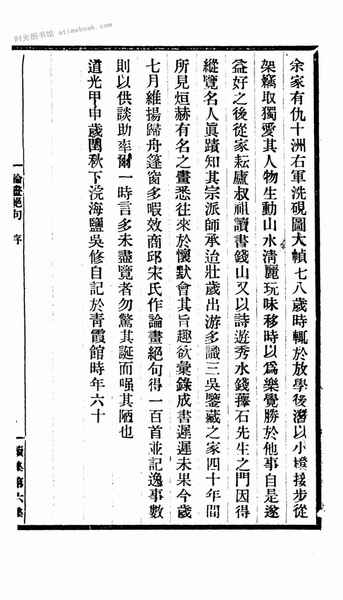 时光图书馆 atimebook.com
余家有仇十洲右軍洗硯圖大幀七八歲時輒於放學後潛以小櫈接步從
架竊取獨愛其人物生動山水清麗玩味移時以爲樂覺勝於他事自是遂
益好之後從家耘廬叔祖讀書錢山又以詩遊秀水錢蘀石先生之門因得
縱覽名人眞蹟知其宗派師承迨壯歲出游多識三吳鑒藏之家四十年間
所見烜赫有名之畫悉往來於懷默會其旨趣欲彙錄成書遲遲未果今歲
七月維揚歸舟篷窗多暇效商邱宋氏作論畫絕句得一百首並記逸事數
則以供談助率爾一時言多未盡覽者勿驚其誕而嗤其陋也
道光甲申歲閏秋下浣海鹽吳修自記於靑霞館時年六十
論畫絕句 序
第六集